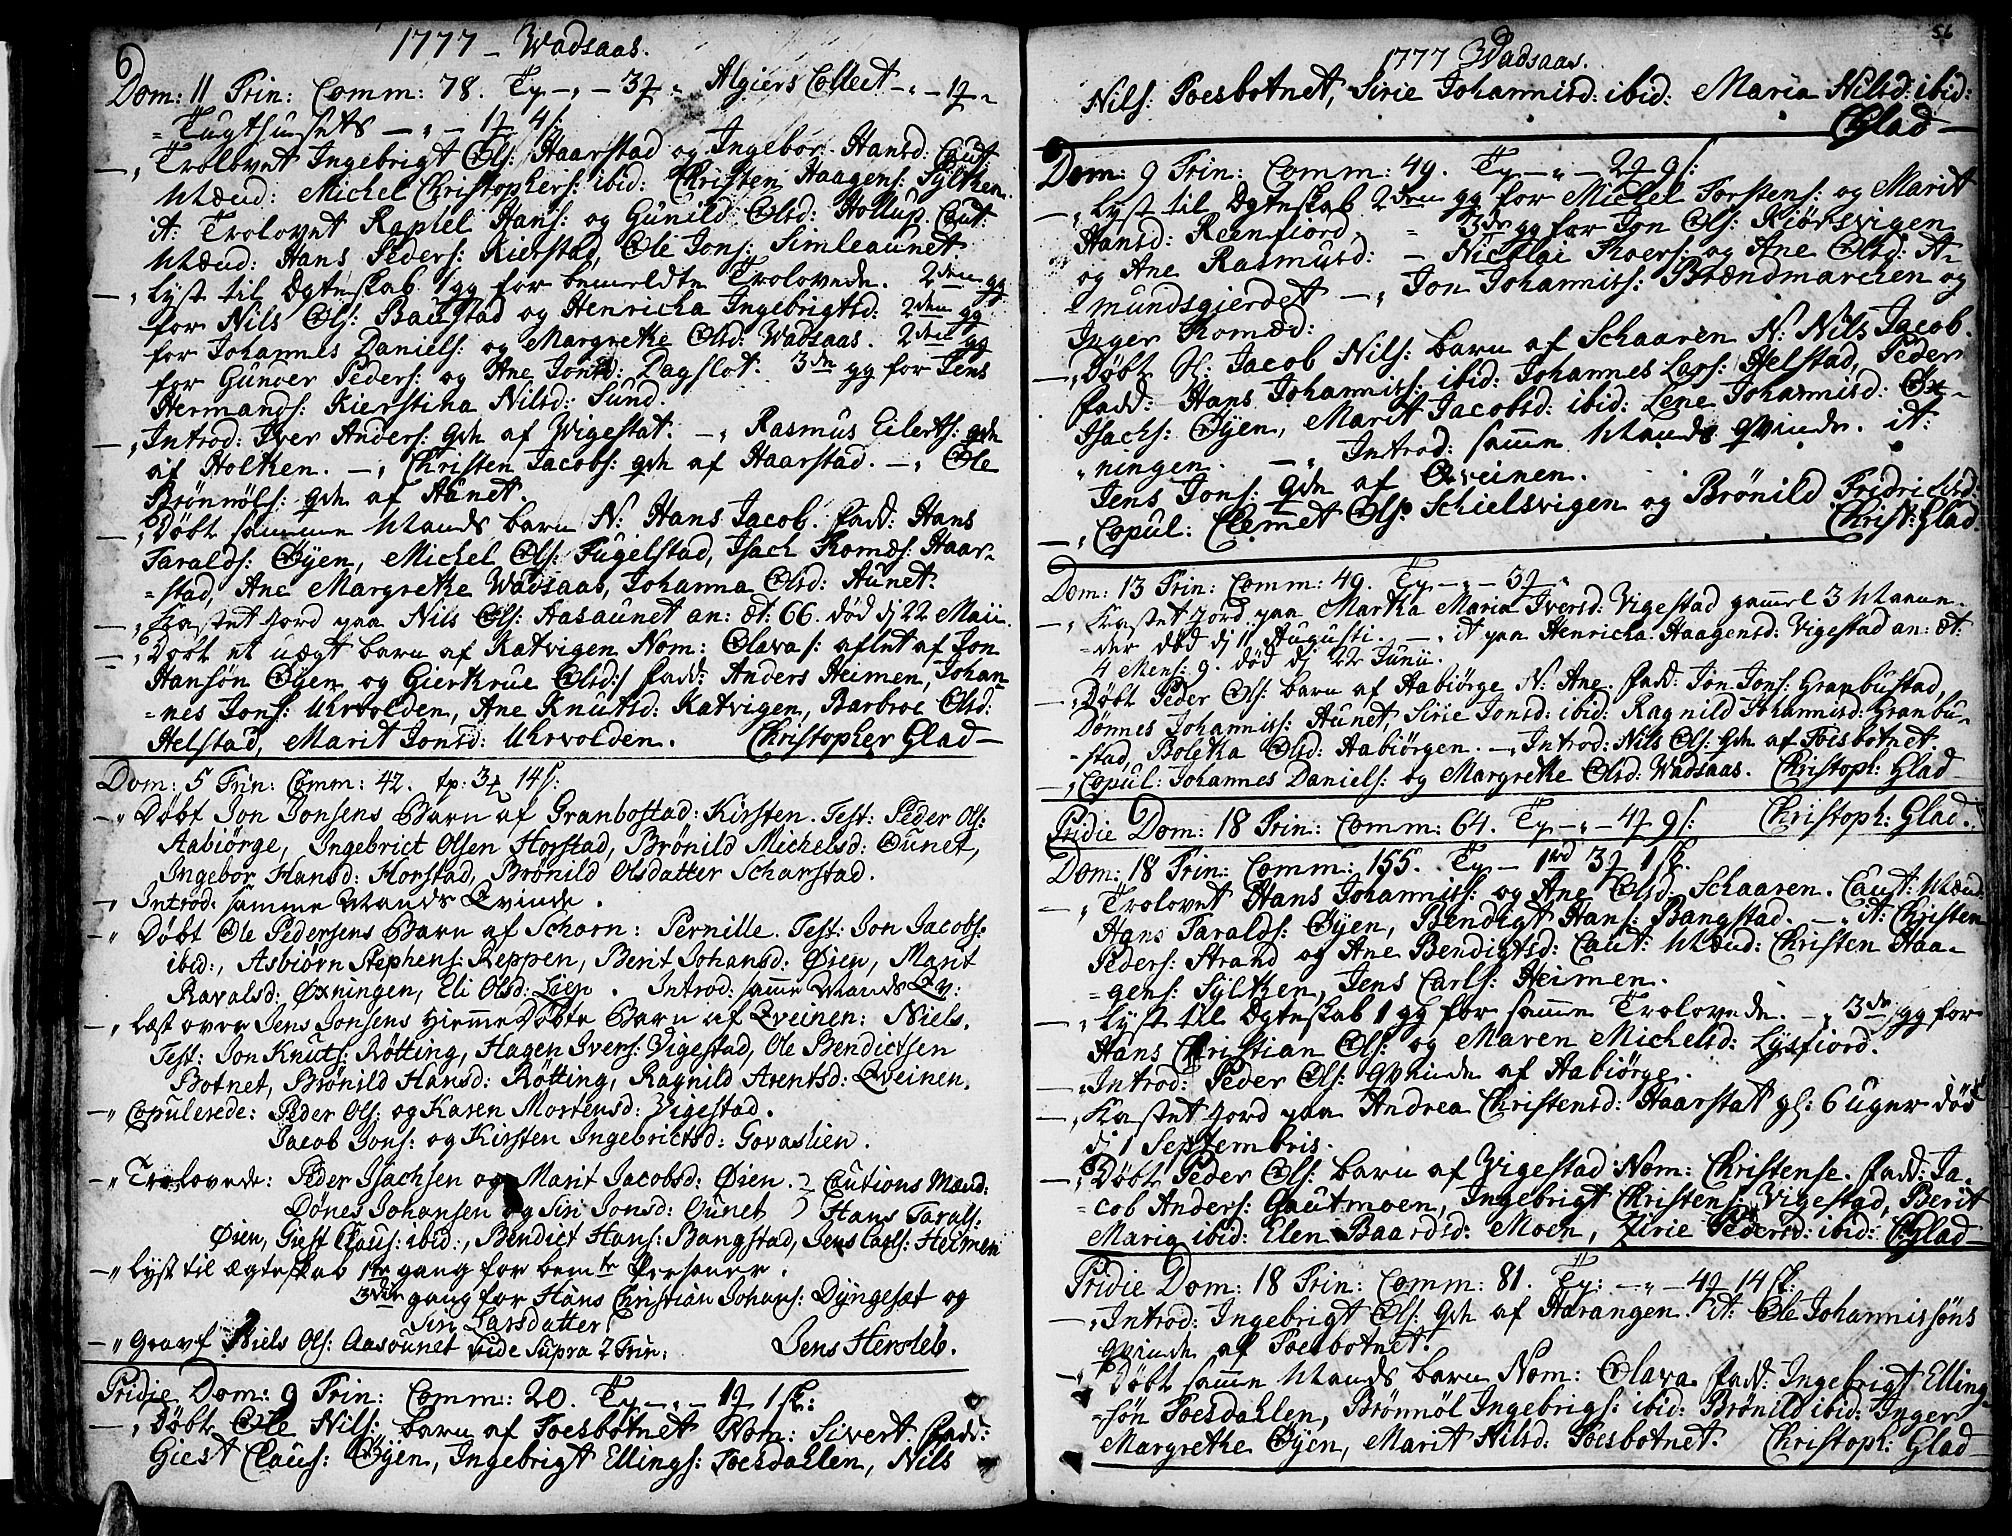 6
1777 – Wadsaas.
Dom: 11 Trin: Comm: 78. Tp –„– 3 „ Algiers Collect –„– 1
= Tugthusets –„– 1 4 s:
–„ Trolovet Ingebrigt Ols: Haarstad og Ingebor Hansd: Caut:
Mænd: Michel Christophers: ibid: Christen Haagens: Syltken.
it: Trolovet Raphel Hans: og Gunild Olsd: Hollup. Caut:
Mænd: Hans Peders: Kierstad, Ole Jons: Simleaunet
–„ Lyst til Ægteskab 1 gg for bemeldte Trolovede. 2den gg
for Nils Ols: Baustad og Henricha Ingebrigtsd: 2den gg
for Johannes Daniels: og Margrethe Olsd: Wadsaas. 2den gg
for Gunder Peders: og Ane Jonsd: Dagslot. 3de gg for Jens
Hermands: Kierstina Nilsd: Sund.
–„ Introd: Iver Anders: Qde af Vigestat. –„ Rasmus Eilerts: qde
af Holken. –„ Christen Jacobs: qde af Haarstad. –„ Ole
Brønnøls: qde af Aunet.
–„ Døbt samme Mands barn N: Hans Jacob. fadd: Hans
Taralds: Øyen, Michel Ols: Fugelstad, Isach Thomæs: Haar-
=stad, Ane Margrethe Wadsaas, Johanna Olsd: Aunet.
–„ Kastet Jord paa Nils Ols: Aasaunet an: æt: 66. død dj 22 Maii.
–„ Døbt et uægt barn af Katvigen Nom: Olava s: aflet af Jon
Hansøn Øyen og Giertrue Olsd:/ fadd: Anders Heimen, Johan-
=nes Jons: Uhrvolden, Ane Knutsd: Katvigen, Barbroe Olsd:
Helstad, Marit Jonsd: Uhrvolden. Christopher Glad –
Dom: 5 Trin: Comm: 42. tp: 3 14 s:
–„ Døbt Jon Jonsens Barn af Granbostad: Kirsten. Test: Peder Ols:
Aabiørge, Ingebrict Olsen Horstad, Brønild Michelsd: Ounet,
Ingebor Hansd: Horstad, Brønild Olsdatter Scharstad.
–„ Introd: samme Mands Qvinde.
–„ Døbt Ole Pedersens Barn af Schorn: Pernille. Test: Jon Jacobs:
ibid:, Asbiørn Stephens: Reppen, Berit Johansd: Øien, Marit
Ravalsd: Øxningen, Eli Olsd: Lien. Introd: samme Mands Qv:
–„ Læst over Jens Jonsens Hiemme Døbte Barn af Qveinen: Niels.
Test: Jon Knuts: Røtting, Hagen Ivers: Vigestad, Ole Bendictsen
Botnet, Brønild Hansd: Røtting, Ragnild Arentsd: Qveinen.
–„ Copulerede: Peder Ols: og Karen Mortensd: Vigestad.
Jacob Jons: og Kirsten Ingebrictsd: Govaslien.
–„ Trolovede: Peder Isachsen og Marit Jacobsd: Øien. } Cautions Mænd:
Dønes Johansen og Siri Jonsd: Ounet } Hans Tarals:
Øien, Giest Claus: ibid:, Bendict Hans: Bangstad, Jens Carls: Heimen
–„ Lyst til ægteskab 1te gang for bemte Personer.
3die gang for Hans Christian Johans: Dyngesæt og
Siri Larsdatter.
–„ Gravf Niels Ols: Aasounet vide Supra 2 Trin: Jens Hersleb.
Pridie Dom: 9 Trin: Comm: 20. Tp –„– 1 1 sk:
–„ Døbt Ole Nils: barn af Foesbotnet Nom: Sivert. fadd:
Giest Claus: Øyen, Ingebrigt Ellings: Foesdahlen, Nils
56
1777 Wadsaas.
Nils: Foesbotnet, Sirie Johannisd: ibid: Maria Nilsd: ibid:
CGlad –
Dom: 9 Trin: Comm: 49. Tp –„– 2 9 s:
–„ Lyst til Ægteskab 2den gg for Michel Torstens: og Marit
Hansd: Reenfiord. = 3de gg for Jon Ols: Kiørsvigen
og Ane Rasmusd: – Nicolai Roers: og Ane Olsd: A-
=mundsgierdet –„ Jon Johannis: Brændmarchen og
Inger Thomæd:
–„ Døbt Jacob Nils: barn af Schaaren N: Nils Jacob.
fadd: Hans Johannis: ibid: Johannes Lars: Helstad, Peder
Isachs: Øyen, Marit Jacobsd: ibid: Lene Johannisd: Øx-
„ningen. –„ Introd: samme Mands Qvinde. it:
Jens Jons: Qde af Qveinen.
–„ Copul: Clemet Ols: Schielsvigen og Brønild Fridrichsd:
Christ: Glad.
Dom: 13 Trin: Comm: 49. Tp –„– 3
–„ Kastet Jord paa Martha Maria Iversd: Vigestad gammel 3 Maane-
=der død dj 11 Augusti. –„ it paa Henricha Haagensd: Vigestad an: æt:
4 Mens: 9. død dj 22 Junii.
–„ Døbt Peder Ols: barn af Aabiørge N: Ane. fadd: Jon Jons: Granbustad,
Dønnes Johannis: Aunet, Sirie Jonsd: ibid: Ragnild Johannisd: Granbu-
=stad, Boletha Olsd: Aabiørgen. –„ Introd: Nils Ols: Qde af Foesbotnet.
–„ Copul: Johannes Daniels: og Margrethe Olsd: Wadsaas. Christoph: Glad –
Pridie Dom: 18 Trin: Comm: 64. Tp –„– 4 9 s: Christoph: Glad.
Dom: 18 Trin: Comm: 155. Tp – 1rd 3 1 sk.
–„ Trolovet Hans Johannis: og Ane Olsd: Schaaren. Caut: Mænd
Hans Taralds: Øyen, Bendigt Hans: Bangstad. –„ it: Christen
Peders: Strand og Ane Bendigtsd: Caut: Mænd: Christen Haa-
=gens: Syltken, Jens Carls: Heimen.
–„ Lyst til Ægteskab 1 gg for samme Trolovede. –„ 3de gg for
Hans Christian Ols: og Maren Michelsd: Lysfiord.
–„ Introd: Peder Ols: Qvinde af Aabiørge.
–„ Kastet Jord paa Andrea Christensd: Haarstat gl: 6 uger død
dj 1 Septembris.
–„ Døbt Peder Ols: barn af Vigestad Nom: Christense. fadd: Ja-
=cob Anders: Gautmoen, Ingebrigt Christens: Vigestad, Berit
Maria ibid: Elen Baardsd: Moen, Zirie Pedersd: ibid: CGlad –
Pridie Dom: 18 Trin: Comm: 81. Tp: –„– 4 14 sk.
–„ Introd: Ingebrigt Ols: Qde af Harangen. it: Ole Johannissøns
qvinde af Foesbotnet.
–„ Døbt samme Mands barn Nom: Olava. fadd: Ingebrigt Elling-
=søn Foesdahlen, Brønnøl Ingebrigs: ibid: Brønild ibid: Inger
Margrethe Øyen, Marit Nilsd: Foesbotnet. Christoph: Glad –